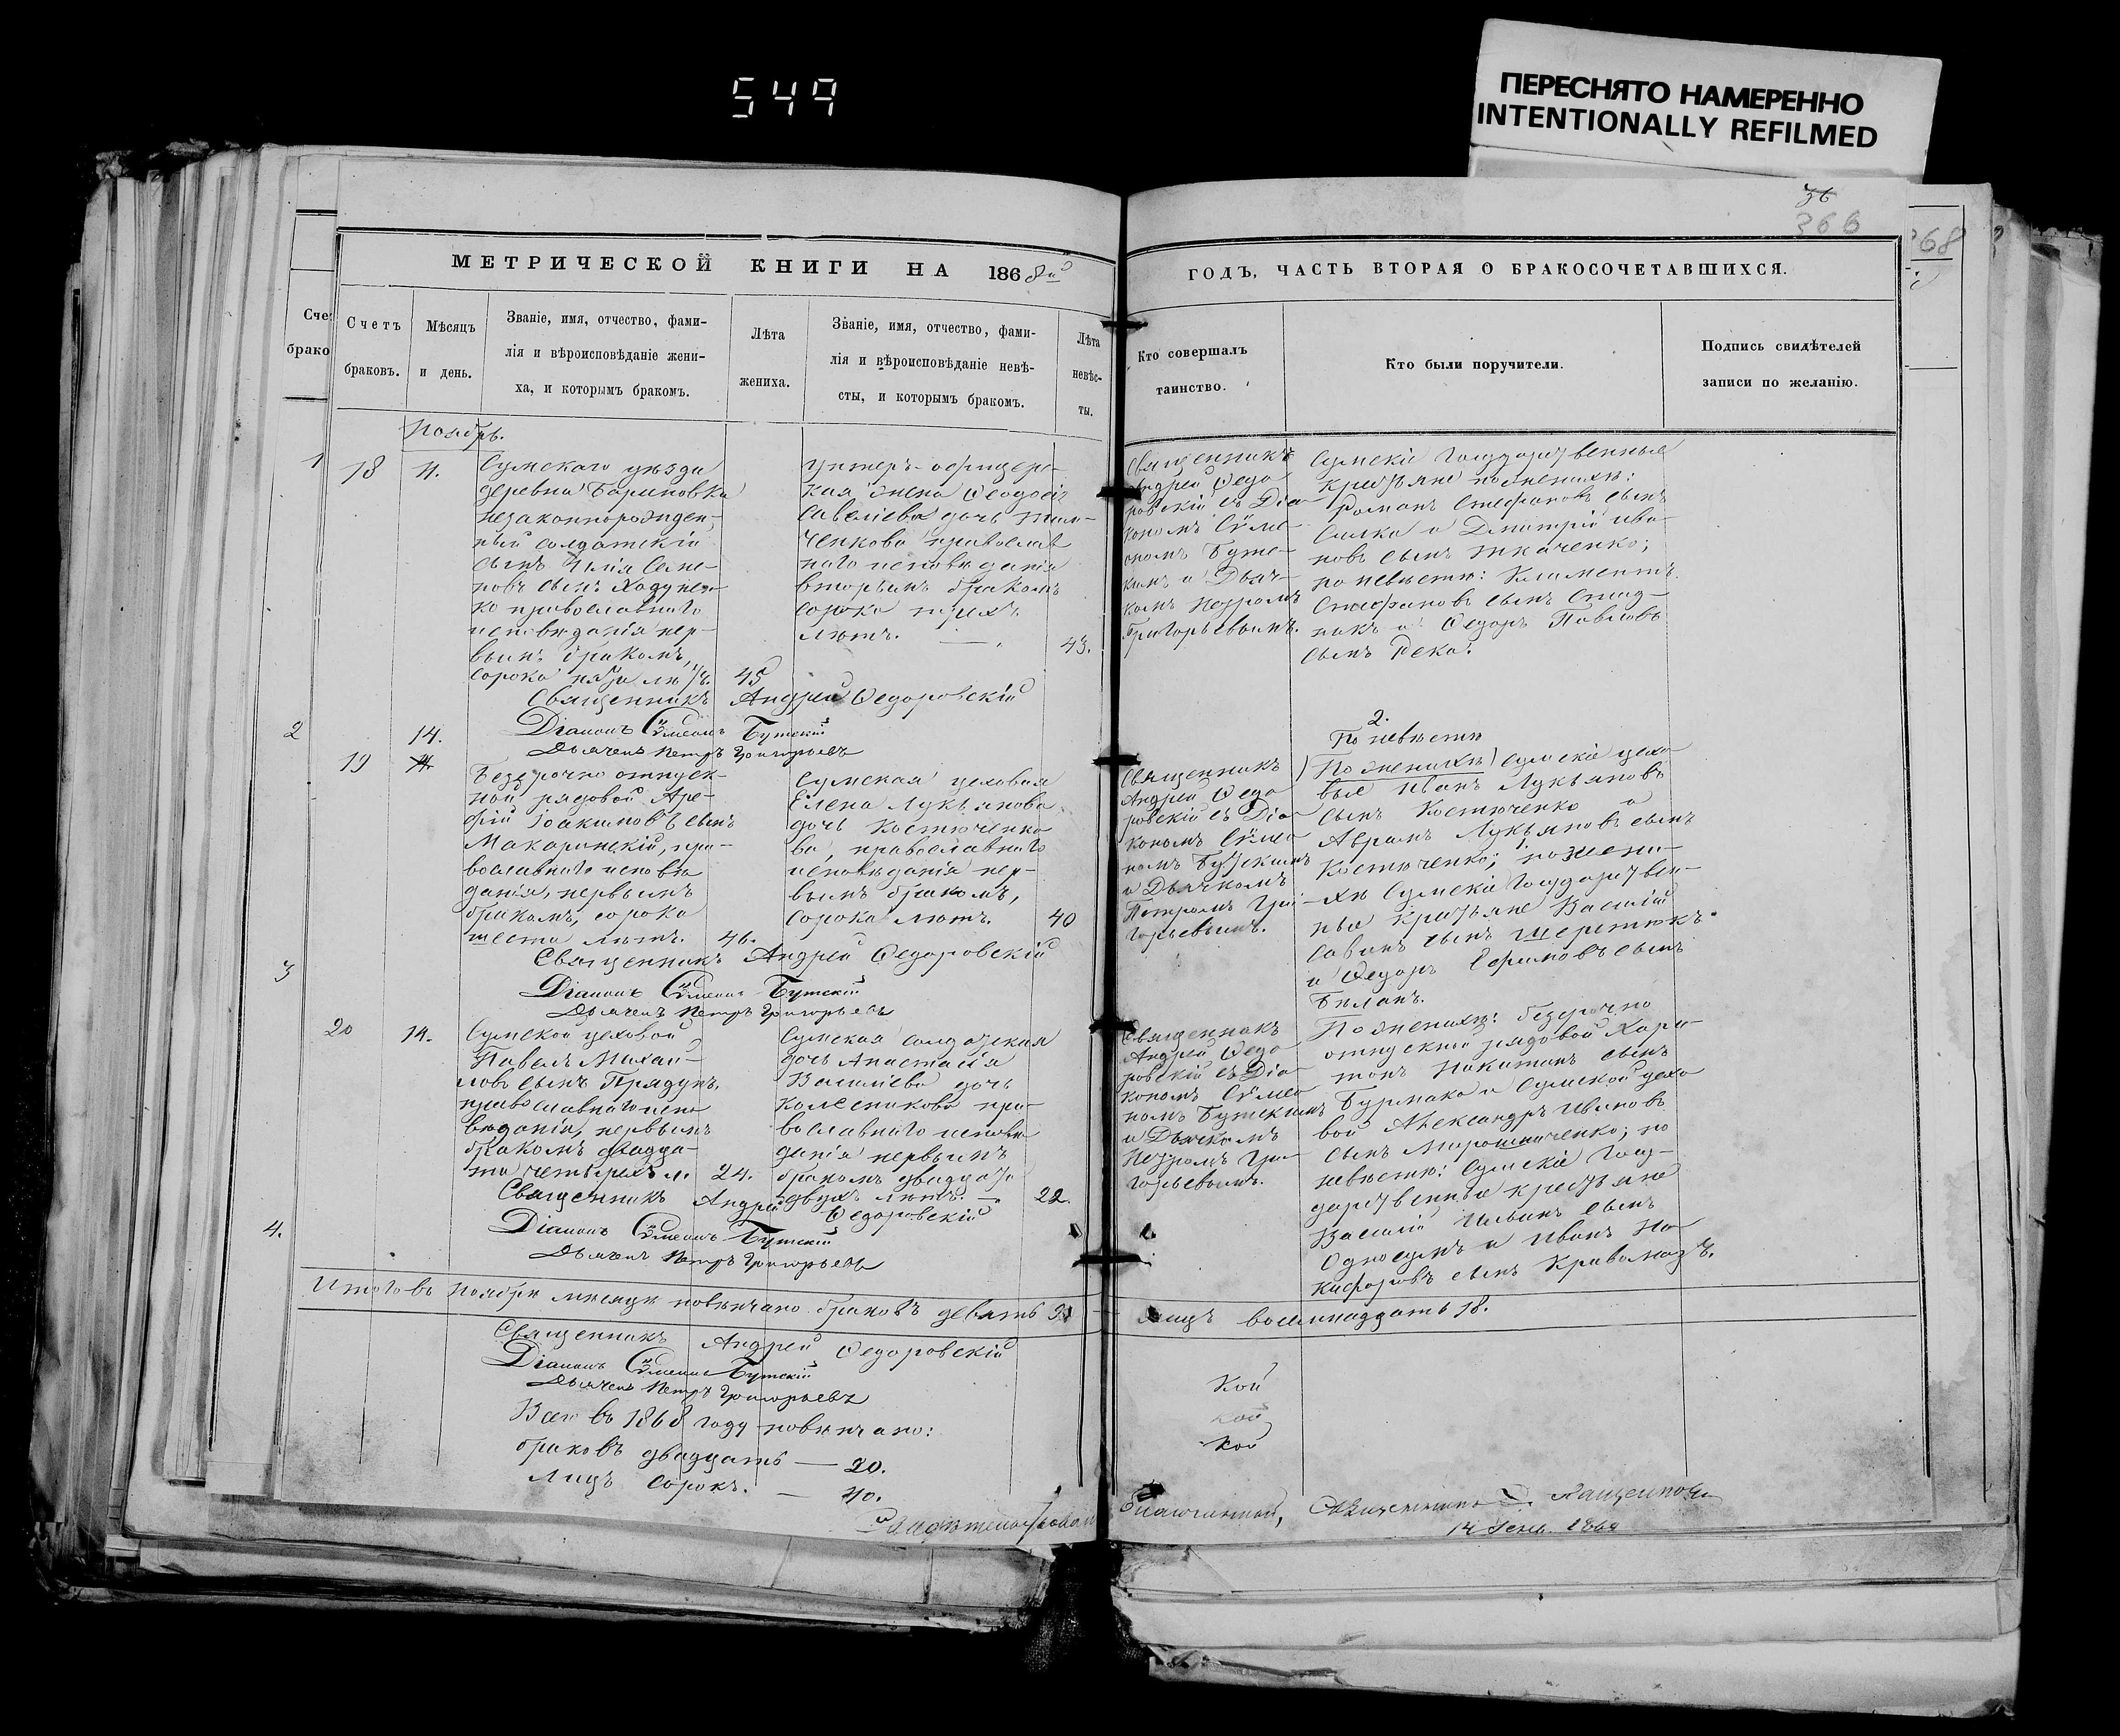 549
ПЕРЕСНЯТО НАМЕРЕННО
INTENTIONALLY REFILMED
36
366
268
МЕТРИЧЕСКОЙ КНИГИ НА 1868й
ГОДЪ, ЧАСТЬ ВТОРАЯ О БРАКОСОЧЕТАВШИХСЯ.
Сче
брако
Счетъ
браковъ.
Мѣсяцъ
и день.
Званіе, имя, отчество, фами-
лія и вѣроисповѣданіе жени-
ха, и которымъ бракомъ.
Лѣта
жениха.
Званіе, имя, отчество, фами-
лія и вѣроисповѣданіе невѣ-
сты, и которымъ бракомъ.
Лѣта
невѣс-
ты.
Кто совершалъ
таинство.
Кто были поручители.
Подпись свидѣтелей
записи по желанію.
Ноябрь.
1
18
4.
Сумскаго уѣзда
деревни Бариновки
незаконнорожден-
ный солдатскій
сынъ Илія Семе-
новъ сынъ Ходунен-
ко православнаго
исповѣданія пер-
вымъ бракомъ,
сорока пяти лѣтъ.
45
Унтеръ-офицерс-
кая жена Ѳеодосія
Савеліева дочь
ченкова православ
наго исповѣданія
вторымъ бракомъ
сорока трехъ
лѣтъ. —
43.
Священникъ
Андрей Ѳедо
ровскій съ Діа-
кономъ Сѵме-
ономъ Бутс-
кимъ и Дьяч-
комъ Петромъ
Григорьевымъ.
Сумскіе Государственные
крестьяне по женихѣ:
Романъ Стефановъ сынъ
Силка и Дмитрій Ива-
новъ сынъ Ткаченко;
по невѣстѣ: Климентъ
Стефановъ сынъ Стад-
никъ и Ѳедоръ Павловъ
сынъ Река.
Священникъ Андрей Ѳедоровскій
Діаконъ Сѵмеонъ Бутскій
Дьячекъ Петръ Григорьевъ
2
19
14.
Безсрочно отпуск-
ной рядовой Аре-
фій Іоакимовъ сынъ
Макаринскій, пра-
вославнаго исповѣ
данія, первымъ
бракомъ, сорока
шести лѣтъ.
46.
Сумская цеховая
Елена Лукьянова
дочь Костюченко
ва, православнаго
исповѣданія пер-
вымъ бракомъ,
сорока лѣтъ.
40
Священникъ
Андрей Ѳедо
ровскій съ Діа-
кономъ Сѵмео
номъ Бутскимъ
и Дьячкомъ
Петромъ Гри-
горьевымъ.
2.
По невѣстѣ
(По женихѣ) Сумскіе цехо-
вые Иванъ Лукьяновъ
сынъ Костюченко и
Аврамъ Лукьяновъ сынъ
Костюченко; по жени-
хѣ Сумскіе Государствен-
ные крестьяне Василій
Савинъ сынъ Шерстюкъ
и Ѳедоръ Ефимовъ сынъ
Бѣланъ.
Священникъ Андрей Ѳедоровскій
Діаконъ Сѵмеонъ Бутскій
Дьячекъ Петръ Григорьевъ
3
20
14.
Сумской цеховой
Павелъ Михай-
ловъ сынъ Прядунъ,
православнаго испо
вѣданія, первымъ
бракомъ двадца-
ти четырехъ л.
24.
Сумская солдатская
дочь Анастасія
Василіева дочь
Колесникова пра-
вославнаго исповѣ
данія первымъ
бракомъ двадцати
двухъ лѣтъ. —
22.
Священникъ
Андрей Ѳедо
ровскій съ Діа-
кономъ Сѵмео
номъ Бутскимъ
и Дьячкомъ
Петромъ Гри-
горьевымъ.
По женихѣ: безсрочно
отпускной рядовой Хари-
тонъ Никитинъ сынъ
Бурмака и Сумской цехо
вой Александръ Ивановъ
сынъ Мирошниченко; по
невѣстѣ: Сумскіе Госу-
дарственные крестьяне
Василій Ильинъ сынъ
Односумъ и Иванъ Ни-
кифоровъ сынъ Кривомазъ.
Священникъ Андрей Ѳедоровскій
Діаконъ Сѵмеонъ Бутскій
Дьячекъ Петръ Григорьевъ
4.
Итого въ Ноябрѣ мѣсяцѣ повѣнчано браковъ девять 9. лицъ восемнадцать 18.
Священникъ Андрей Ѳедоровскій
Діаконъ Сѵмеонъ Бутскій
Дьячекъ Петръ Григорьевъ
Всего въ 1868 году повѣнчано:
браковъ двадцать — 20.
Лицъ сорокъ. — 40.
Кой
кой
Кой
Свидѣтельствовалъ Благочинный, Священникъ
14 Генв. 1869